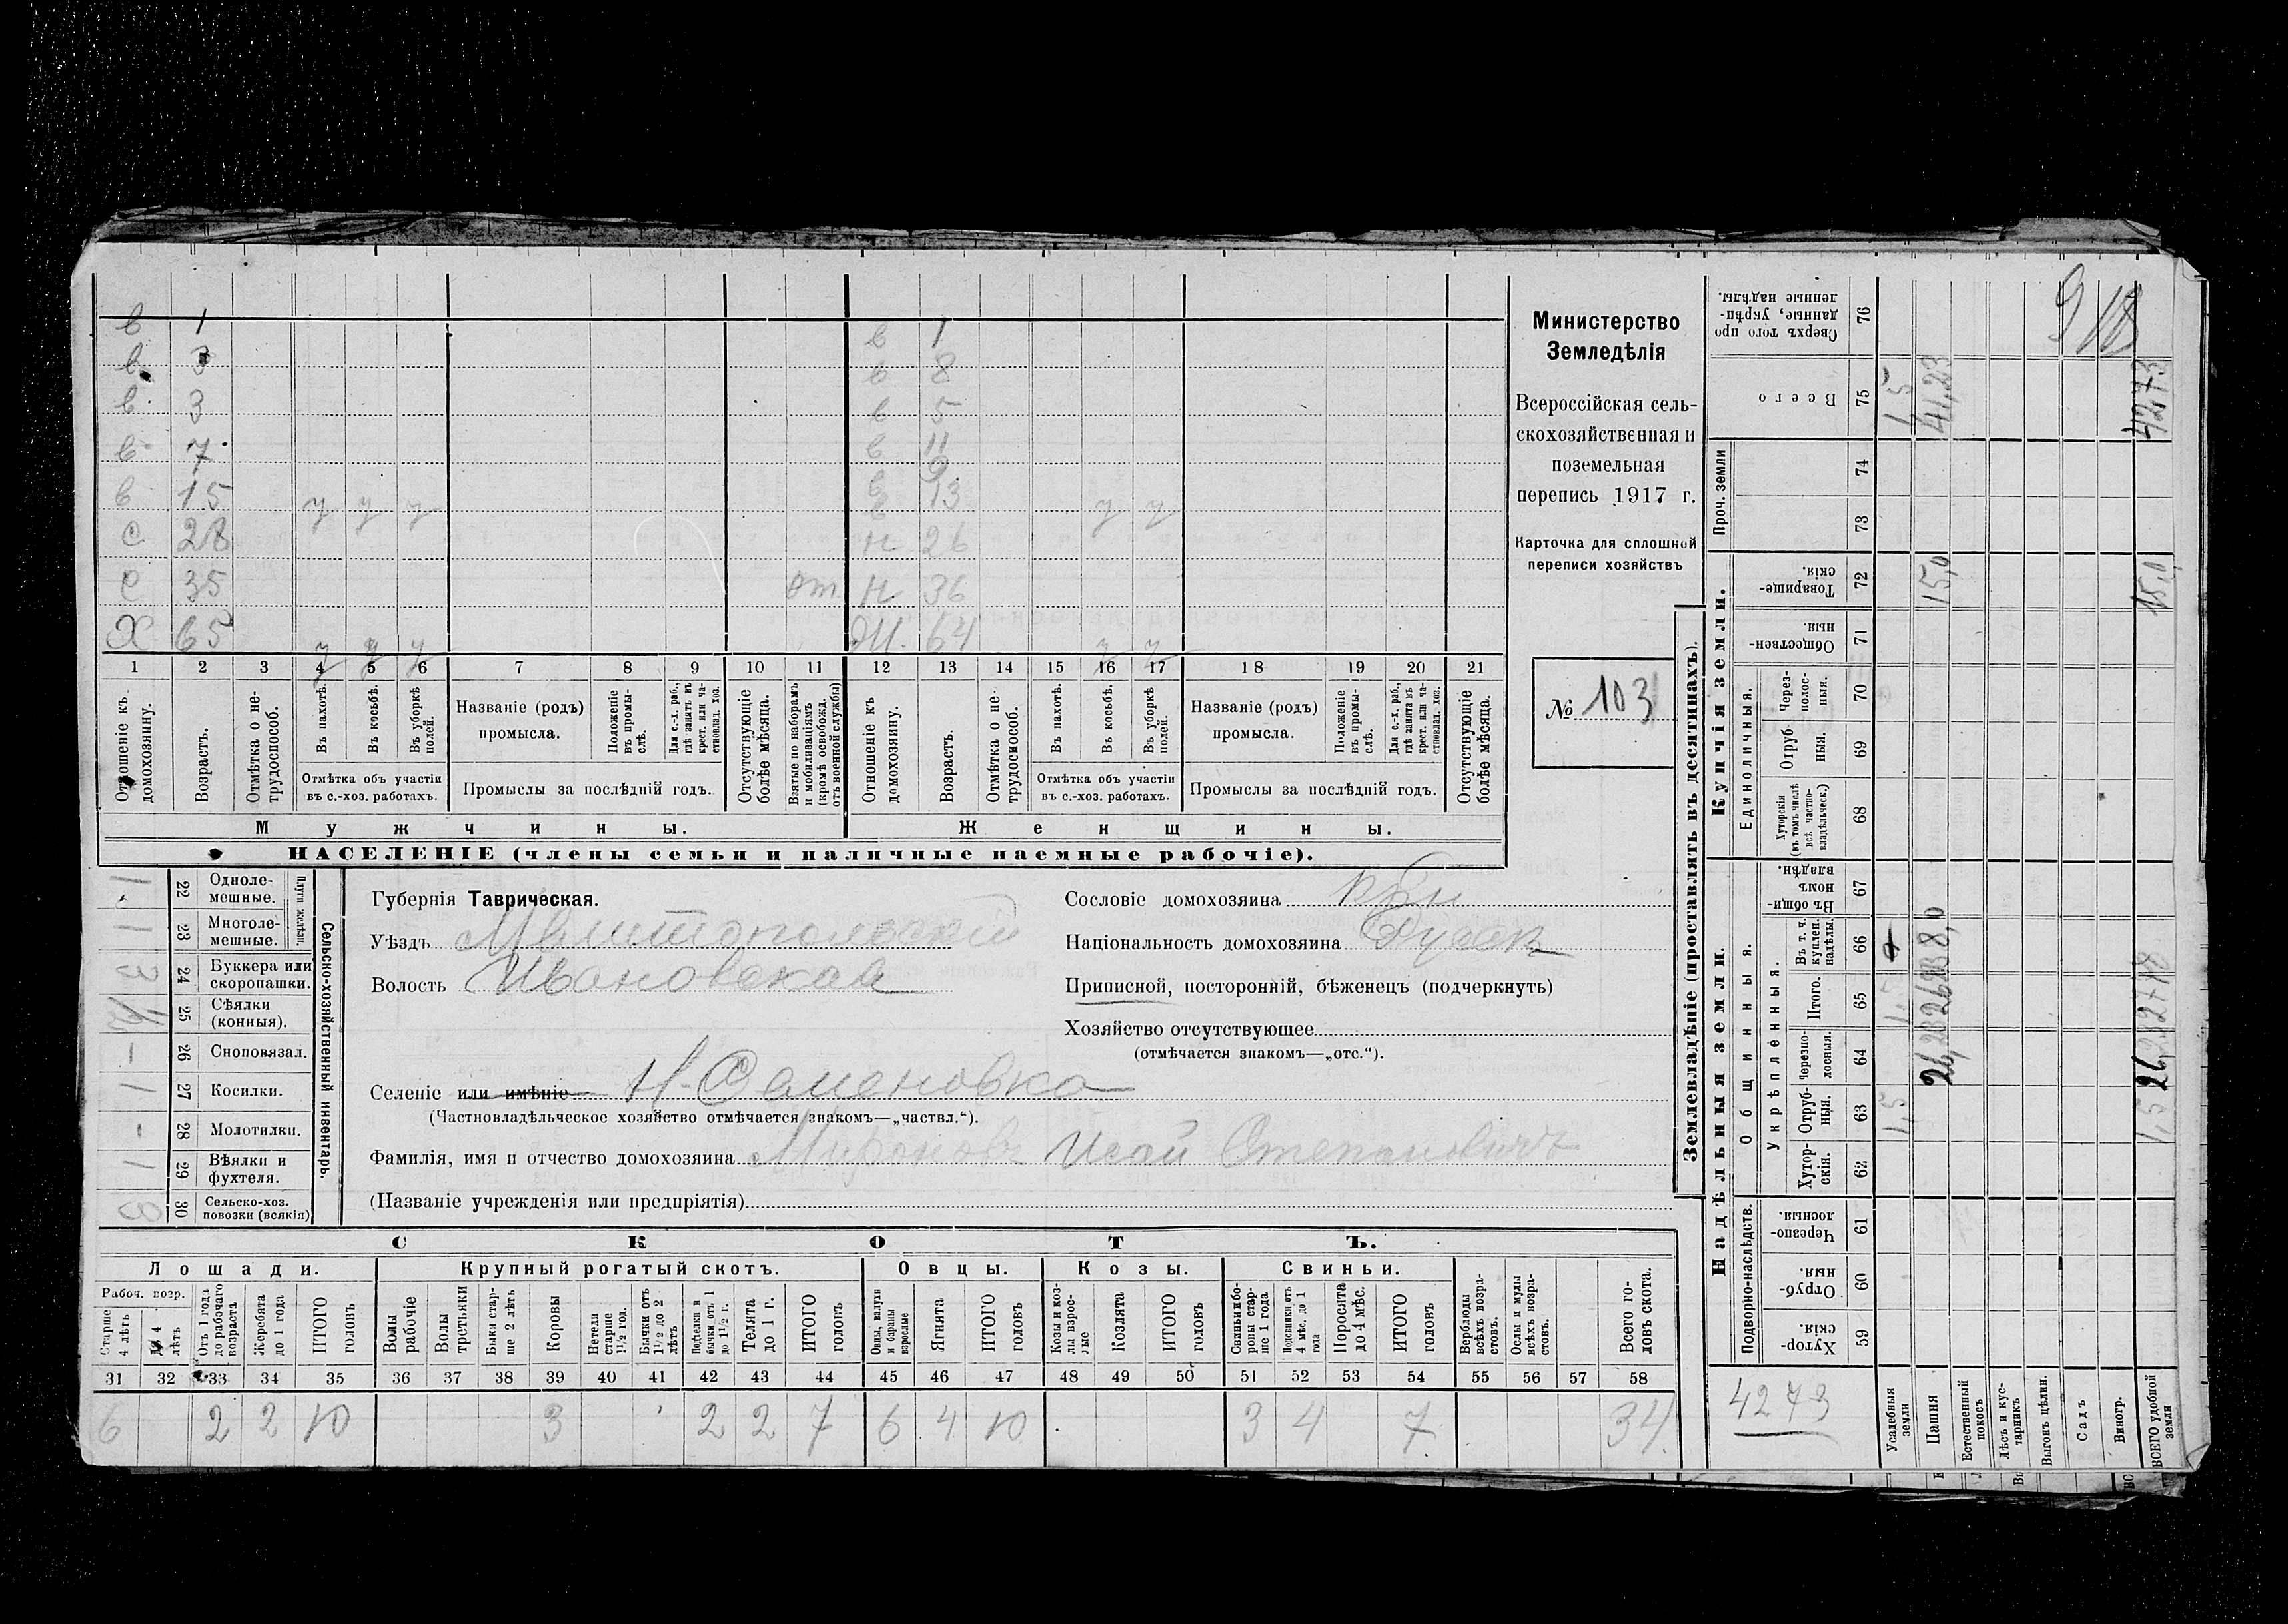 в 1 в 1
в 3 в 8
в 3 в 5
в 7 в 11
9
в 15 у у у в 13 у у
с 28 н 26
с 35 от н 36
Х 65 у у у Ж. 64 у у
1 2 3 4 5 6 7 8 9 10 11 12 13 14 15 16 17 18 19 20 21
Отношеніе къ домохозяину.
Возрастъ.
Отмѣтка о нетрудоспособ.
Въ пахотѣ.
Въ косьбѣ.
Въ уборкѣ полей.
Отмѣтка объ участіи
въ с.-хоз. работахъ.
Названіе (родъ)
промысла.
Положеніе въ промыслѣ.
Для с.-х. раб., гдѣ занятъ въ крест. или частновлад. хоз.
Промыслы за послѣдній годъ.
Отсутствующіе болѣе мѣсяца.
Взятые по наборамъ и мобилизаціямъ (кромѣ освобожд. отъ военной службы)
Отношеніе къ домохозяину.
Возрастъ.
Отмѣтка о нетрудоспособ.
Въ пахотѣ.
Въ косьбѣ.
Въ уборкѣ полей.
Отмѣтка объ участіи
въ с.-хоз. работахъ.
Названіе (родъ)
промысла.
Положеніе въ промыслѣ.
Для с.-х. раб., гдѣ занята въ крест. или частновлад. хоз.
Промыслы за послѣдній годъ.
Отсутствующіе болѣе мѣсяца.
Мужчины. Женщины.
НАСЕЛЕНІЕ (члены семьи и наличные наемные рабочіе).
Министерство
Земледѣлія
Всероссійская сель-
скохозяйственная и
поземельная
перепись 1917 г.
Карточка для сплошной
переписи хозяйствъ
№ 103
Сельско-хозяйственный инвентарь.
Плуги желѣзн.
1 22 Однолемешные.
1 23 Многолемешные.
3 24 Буккера или скоропашки.
1/2 25 Сѣялки (конныя).
- 26 Сноповязал.
1 27 Косилки.
- 28 Молотилки.
1 29 Вѣялки и фухтеля.
3 30 Сельско-хоз. повозки (всякія)
Губернія Таврическая.
Уѣздъ Мелитопольскій
Волость Ивановская
Селеніе или имѣніе Н-Семеновка
(Частновладѣльческое хозяйство отмѣчается знакомъ—„частвл.“).
Фамилія, имя и отчество домохозяина Миронов Исай Степановичъ
(Названіе учрежденія или предпріятія)
Сословіе домохозяина
Національность домохозяина
Приписной, посторонній, бѣженецъ (подчеркнуть)
Хозяйство отсутствующее
(отмѣчается знакомъ—„отс.“).
СКОТЪ.
Лошади. Крупный рогатый скотъ. Овцы. Козы. Свиньи.
Рабоч. возр.
Старше 4 лѣтъ
До 4 лѣтъ
Отъ 1 года до рабочаго возраста
Жеребята до 1 года
ИТОГО головъ
Волы рабочіе
Волы третьяки
Быки старше 2 лѣтъ
Коровы
Нетели старше 1 1/2 год.
Бычки отъ 1 1/2 до 2 лѣтъ
Подтелки и бычки отъ 1 до 1 1/2 г.
Телята до 1 г.
ИТОГО головъ
Овцы, валухи и бараны взрослые
Ягнята
ИТОГО головъ
Козы и козлы взрослые
Козлята
ИТОГО головъ
Свиньи и боровы старше 1 года
Подсвинки отъ 4 мѣс. до 1 года
Поросята до 4 мѣс.
ИТОГО головъ
Верблюды всѣхъ возрастовъ.
Ослы и мулы всѣхъ возрастовъ.
Всего головъ скота.
31 32 33 34 35 36 37 38 39 40 41 42 43 44 45 46 47 48 49 50 51 52 53 54 55 56 57 58
6 2 2 10 3 2 2 7 6 4 10 3 4 7 34
Землевладѣніе (проставлять въ десятинахъ).
Купчія земли.
Надѣльныя земли.
Сверхъ того проданные, укрѣпленные надѣлы. 76
Всего 75 1,5 41,23 42,73
Проч. земли 74 73
Товарищескія. 72 15,0 15,0
Общественныя. 71
Единоличныя.
Черезполосныя. 70
Отрубныя. 69
Хуторскія (въ томъ числѣ всѣ частновладѣльческ.) 68
Въ общинномъ владѣн. 67
Общинныя.
Укрѣпленныя.
Въ т. ч. куплен. надѣлы. 66 8,0
Итого. 65
Черезполосныя. 64 26,23 26,23
Отрубныя. 63 1,5 1,5
Хуторскія. 62
Подворно-наслѣдств.
Черезполосныя. 61
Отрубныя 60
Хуторскія. 59
4273
Усадебныя земли
Пашня
Естественный покосъ
Лѣсъ и кустарникъ
Выгонъ цѣлин.
Садъ
Виногр.
ВСЕГО удобной земли